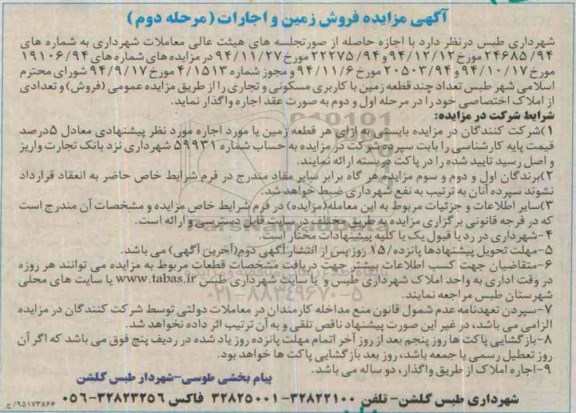 آگهی مزایده فروش زمین و اجارات (مرحله دوم)
شهرداری طبس درنظر دارد با اجازه حاصله از صورتجلسه های هیئت عالی معاملات شهرداری به شماره های
۲۴۶۸۵/۹۴ مورخ ۹۴/۱۲/۱۲ و ۲۲۲۷۵/۹۴ مورخ ۹۴/۱۱/۲۷ در مزایده های شماره های ۱۹۱۰۶/۹۴
مورخ ۹۴/۱۰/۱۷ و ۲۰۵۰۳/۹۴ مورخ ۹۴/۱۱/۶ و مجوز شماره ۴/۱۵۱۳ مورخ ۹۴/۹/۱۷ شورای محترم
اسلامی شهر طبس تعداد چند قطعه زمین با کاربری مسکونی و تجاری را از طریق مزایده عمومی (فروش) و تعدادی
از املاک اختصاصی خود را در مرحله اول و دوم به صورت عقد اجاره واگذار نماید.
شرایط شرکت در مزایده:
۱)شرکت کنندگان در مزایده بایستی به ازای هر قطعه زمین یا مورد اجاره مورد نظر پیشنهادی معادل ۵درصد
قیمت پایه کارشناسی را بابت سپرده شرکت در مزایده به حساب شماره ۵۹۹۳۱ شهرداری نزد بانک تجارت واریز
و اصل رسید تایید شده را در پاکت دربسته ارائه نمایند.
۲)برندگان اول و دوم و سوم مزایده هر گاه برابر سایر مفاد مندرج در فرم شرایط خاص حاضر به انعقاد قرارداد
نشوند سپرده آنان به ترتیب به نفع شهرداری ضبط خواهد شد.
۳)سایر اطلاعات و جزئیات مربوط به این معامله(مزایده) در فرم شرایط خاص مزایده و مشخصات آن مندرج است
که در فرجه قانونی برگزاری مزایده به طریق مختلف در سایت قابل دسترسی و ارائه است.
۴-شهرداری در رد یا قبول یک یا کلیه پیشنهادات مختار است.
۵-مهلت تحویل پیشنهادها پانزده/۱۵ روز پس از انتشار آگهی دوم(آخرین آگهی) می باشد.
۶-متقاضیان جهت کسب اطلاعات بیشتر جهت دریافت مشخصات قطعات مربوط به مزایده می توانند هر روزه
در وقت اداری به واحد املاک شهرداری طبس و یا سایت شهرداری طبس www.tabas.ir یا سایت های محلی
شهرستان طبس مراجعه نمایند.
۷-سپردن تعهدنامه عدم شمول قانون منع مداخله کارمندان در معاملات دولتی توسط شرکت کنندگان در مزایده
الزامی می باشد، در غیر این صورت پیشنهاد ناقص تلقی و به آن ترتیب اثر داده نخواهد شد.
۸-بازگشایی پاکت ها روز پنجم بعد از روز آخر اتمام مهلت پانزده روز یاد شده در ردیف پنج فوق می باشد که اگر آن
روز تعطیل رسمی یا جمعه باشد، روز بعد بازگشایی پاکت ها خواهد بود.
۹-اجاره املاک از طریق واگذار، دو ساله می باشد.
پیام بخشی طوسی-شهردار طبس گلشن
شهرداری طبس گلشن- تلفن ۳۲۸۲۲۱۰۰-۳۲۸۲۵۰۰۱ فاکس ۳۲۸۲۳۲۵۶-۰۵۶
۹۵۱۷۳۸۶۶/ج
۰۲۱-۸۸۳۴۹۶۷۰-۵